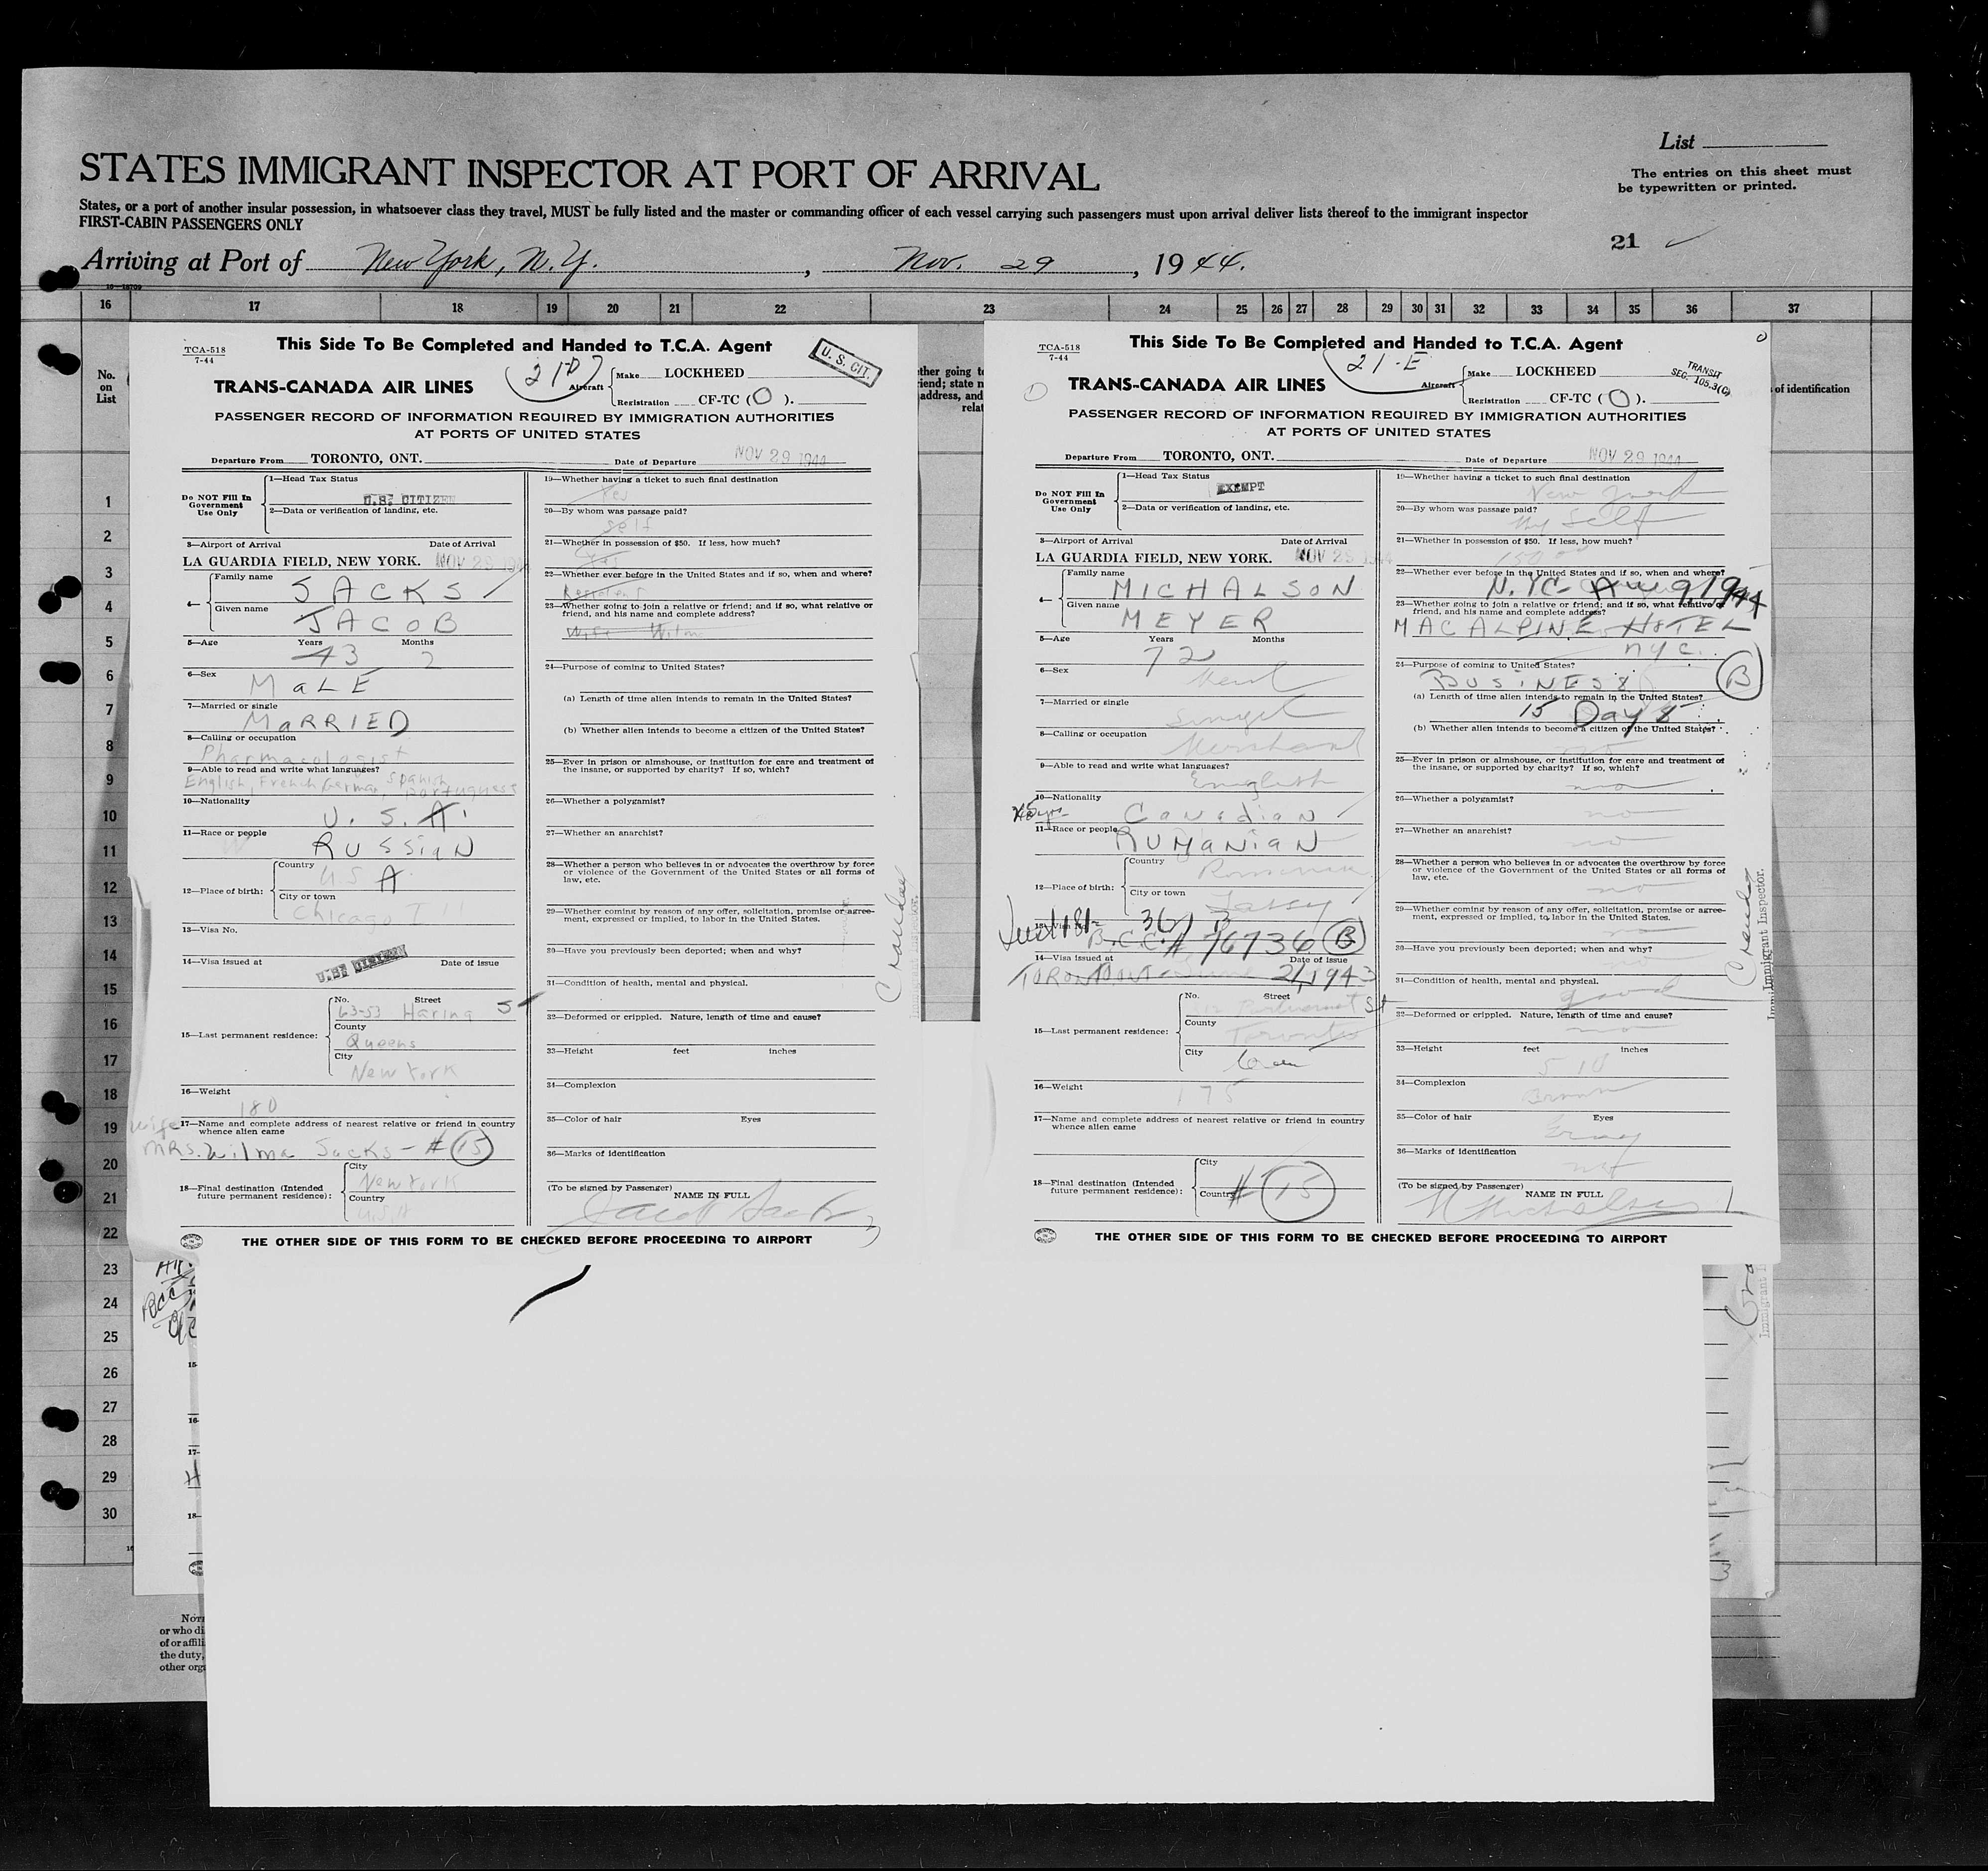 List
STATES IMMIGRANT INSPECTOR AT PORT OF ARRIVAL
The entries on this sheet must
be typewritten or printed.
States, or a port of another insular possession, in whatsoever class they travel, MUST be fully listed and the master or commanding officer of each vessel carrying such passengers must upon arrival deliver lists thereof to the immigrant inspector
FIRST-CABIN PASSENGERS ONLY
21
Arriving at Port of New York, N.Y., Nov. 29, 1944.
16 17 18 19 20 21 22 23 24 25 26 27 28 29 30 31 32 33 34 35 36 37
No.
on
List
1
2
3
4
5
6
7
8
9
10
11
12
13
14
15
16
17
18
19
20
21
22
23
24
25
26
27
28
29
30
TCA-518
7-44
This Side To Be Completed and Handed to T.C.A. Agent
U. S. CIT.
21D
TRANS-CANADA AIR LINES
Aircraft
Make LOCKHEED
Registration CF-TC (O).
PASSENGER RECORD OF INFORMATION REQUIRED BY IMMIGRATION AUTHORITIES
AT PORTS OF UNITED STATES
Departure From TORONTO, ONT. Date of Departure NOV 29 1944
Do NOT Fill In
Government
Use Only
1—Head Tax Status
U.S. CITIZEN
2—Data or verification of landing, etc.
3—Airport of Arrival Date of Arrival
LA GUARDIA FIELD, NEW YORK. NOV 29
4— Family name SACKS
Given name JACOB
5—Age Years Months
43 2
6—Sex
MALE
7—Married or single
MARRIED
8—Calling or occupation
Pharmacologist
9—Able to read and write what languages?
English, French, German, Spanish, Portuguese
10—Nationality
U.S.A.
11—Race or people
RUSSIAN
12—Place of birth: Country
U.S.A.
City or town
Chicago Ill
13—Visa No.
14—Visa issued at Date of issue
U.S. CITIZEN
15—Last permanent residence: No. Street
63-53 Haring St
County
Queens
City
New York
16—Weight
180
17—Name and complete address of nearest relative or friend in country
whence alien came
wife
MRS. Wilma Sacks - # 15
18—Final destination (Intended
future permanent residence):
City
New York
Country
U.S.A
19—Whether having a ticket to such final destination
Yes
20—By whom was passage paid?
Self
21—Whether in possession of $50. If less, how much?
Yes
22—Whether ever before in the United States and if so, when and where?
Resident
23—Whether going to join a relative or friend; and if so, what relative or
friend, and his name and complete address?
Wife Wilma
24—Purpose of coming to United States?
(a) Length of time alien intends to remain in the United States?
(b) Whether alien intends to become a citizen of the United States?
25—Ever in prison or almshouse, or institution for care and treatment of
the insane, or supported by charity? If so, which?
26—Whether a polygamist?
27—Whether an anarchist?
28—Whether a person who believes in or advocates the overthrow by force
or violence of the Government of the United States or all forms of
law, etc.
29—Whether coming by reason of any offer, solicitation, promise or agree-
ment, expressed or implied, to labor in the United States.
30—Have you previously been deported; when and why?
31—Condition of health, mental and physical.
32—Deformed or crippled. Nature, length of time and cause?
33—Height feet inches
34—Complexion
35—Color of hair Eyes
36—Marks of identification
(To be signed by Passenger) NAME IN FULL
Jacob Sacks
THE OTHER SIDE OF THIS FORM TO BE CHECKED BEFORE PROCEEDING TO AIRPORT
TCA-518
7-44
This Side To Be Completed and Handed to T.C.A. Agent
21-E
TRANSIT
SEC. 105.3(C)
TRANS-CANADA AIR LINES
Aircraft
Make LOCKHEED
Registration CF-TC (O).
PASSENGER RECORD OF INFORMATION REQUIRED BY IMMIGRATION AUTHORITIES
AT PORTS OF UNITED STATES
Departure From TORONTO, ONT. Date of Departure NOV 29 1944
Do NOT Fill In
Government
Use Only
1—Head Tax Status
EXEMPT
2—Data or verification of landing, etc.
3—Airport of Arrival Date of Arrival
LA GUARDIA FIELD, NEW YORK. NOV 29 1944
4— Family name MICHALSON
Given name MEYER
5—Age Years Months
72
6—Sex
7—Married or single
Singel
8—Calling or occupation
Merchant
9—Able to read and write what languages?
English
10—Nationality
Canadian
11—Race or people
RUMANIAN
12—Place of birth: Country
Romania
City or town
Jassy
B.C.C.# 76736 B
14—Visa issued at Date of issue
TORONTO 21, 1943
15—Last permanent residence: No. Street
St
County
Toronto
City
Can
16—Weight
175
17—Name and complete address of nearest relative or friend in country
whence alien came
18—Final destination (Intended
future permanent residence):
City
Country
# 15
19—Whether having a ticket to such final destination
New York
20—By whom was passage paid?
My Self
21—Whether in possession of $50. If less, how much?
150.00
22—Whether ever before in the United States and if so, when and where?
N.Y.C. Aug 9, 1944
23—Whether going to join a relative or friend; and if so, what relative or
friend, and his name and complete address?
MACALPINE HOTEL
nyc.
24—Purpose of coming to United States?
BUSINESS B
(a) Length of time alien intends to remain in the United States?
15 Days
(b) Whether alien intends to become a citizen of the United States?
no
25—Ever in prison or almshouse, or institution for care and treatment of
the insane, or supported by charity? If so, which?
no
26—Whether a polygamist?
no
27—Whether an anarchist?
no
28—Whether a person who believes in or advocates the overthrow by force
or violence of the Government of the United States or all forms of
law, etc.
no
29—Whether coming by reason of any offer, solicitation, promise or agree-
ment, expressed or implied, to labor in the United States.
no
30—Have you previously been deported; when and why?
31—Condition of health, mental and physical.
good
32—Deformed or crippled. Nature, length of time and cause?
no
33—Height feet inches
5 10
34—Complexion
Brown
35—Color of hair Eyes
Gray
36—Marks of identification
not
(To be signed by Passenger) NAME IN FULL
M Michalson
THE OTHER SIDE OF THIS FORM TO BE CHECKED BEFORE PROCEEDING TO AIRPORT
Immigrant Inspector.
of identification